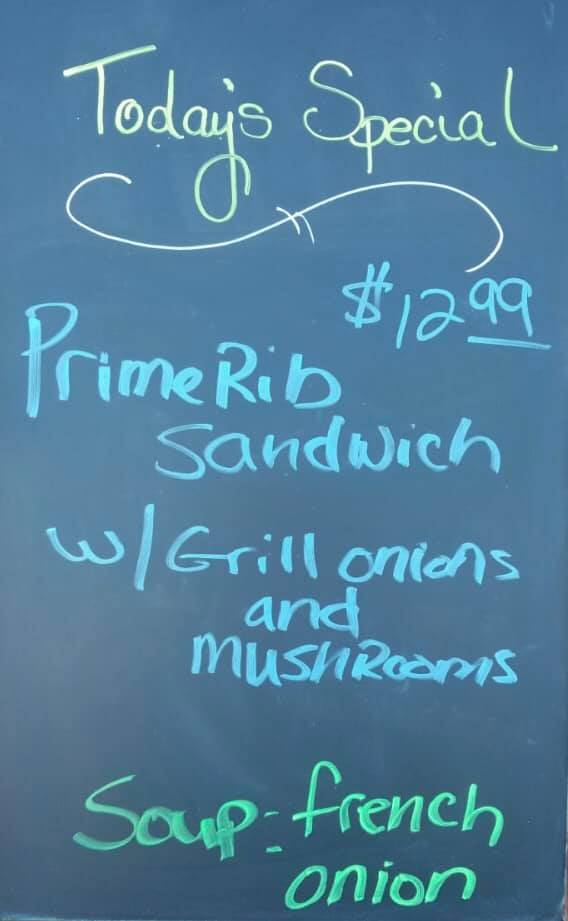 Today's Special
$12.99
Prime Rib
Sandwich
w/Grill onions
and
mushRooms
Soup: french
onion